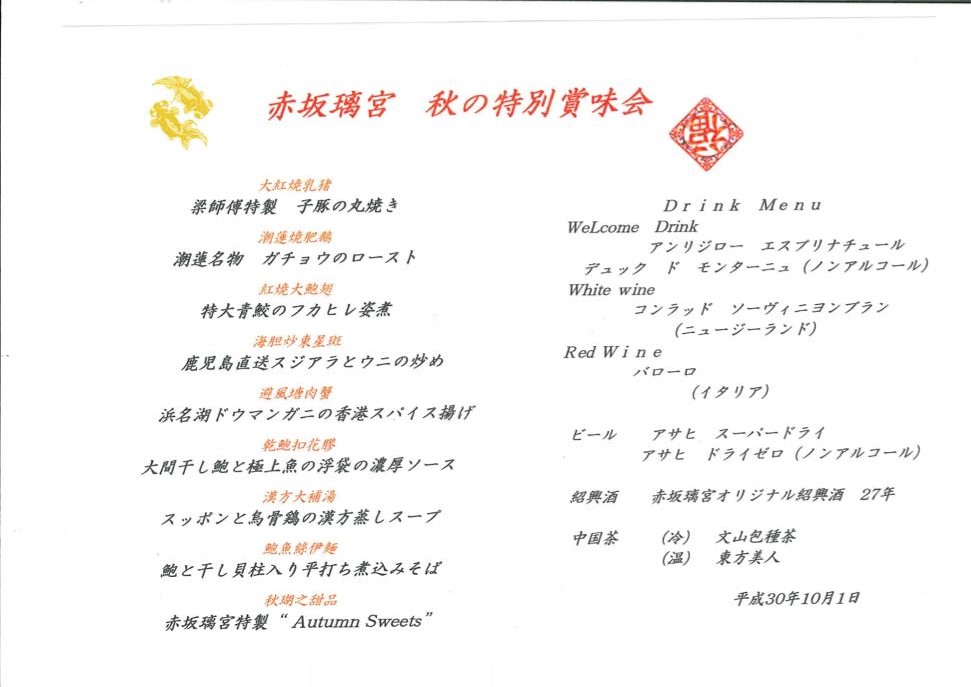 赤坂璃宮 秋の特別賞味会
福
大紅燒乳猪
梁師傅特製 子豚の丸焼き
潮蓮燒肥鵝
潮蓮名物 ガチョウのロースト
紅燒大鮑翅
特大青鮫のフカヒレ姿煮
海胆炒東星斑
鹿児島直送スジアラとウニの炒め
避風塘肉蟹
浜名湖ドウマンガニの香港スパイス揚げ
乾鮑扣花膠
大間干し鮑と極上魚の浮袋の濃厚ソース
漢方大補湯
スッポンと烏骨鶏の漢方蒸しスープ
鮑魚絲伊麺
鮑と干し貝柱入り平打ち煮込みそば
秋瑚之甜品
赤坂璃宮特製 “ Autumn Sweets”
Drink Menu
WeLcome Drink
アンリジロー エスプリナチュール
デュック ド モンターニュ (ノンアルコール)
White wine
コンラッド ソーヴィニヨンブラン
(ニュージーランド)
Red Wine
バローロ
(イタリア)
ビール アサヒ スーパードライ
アサヒ ドライゼロ (ノンアルコール)
紹興酒 赤坂璃宮オリジナル紹興酒 27年
中国茶 (冷) 文山包種茶
(温) 東方美人
平成30年10月1日